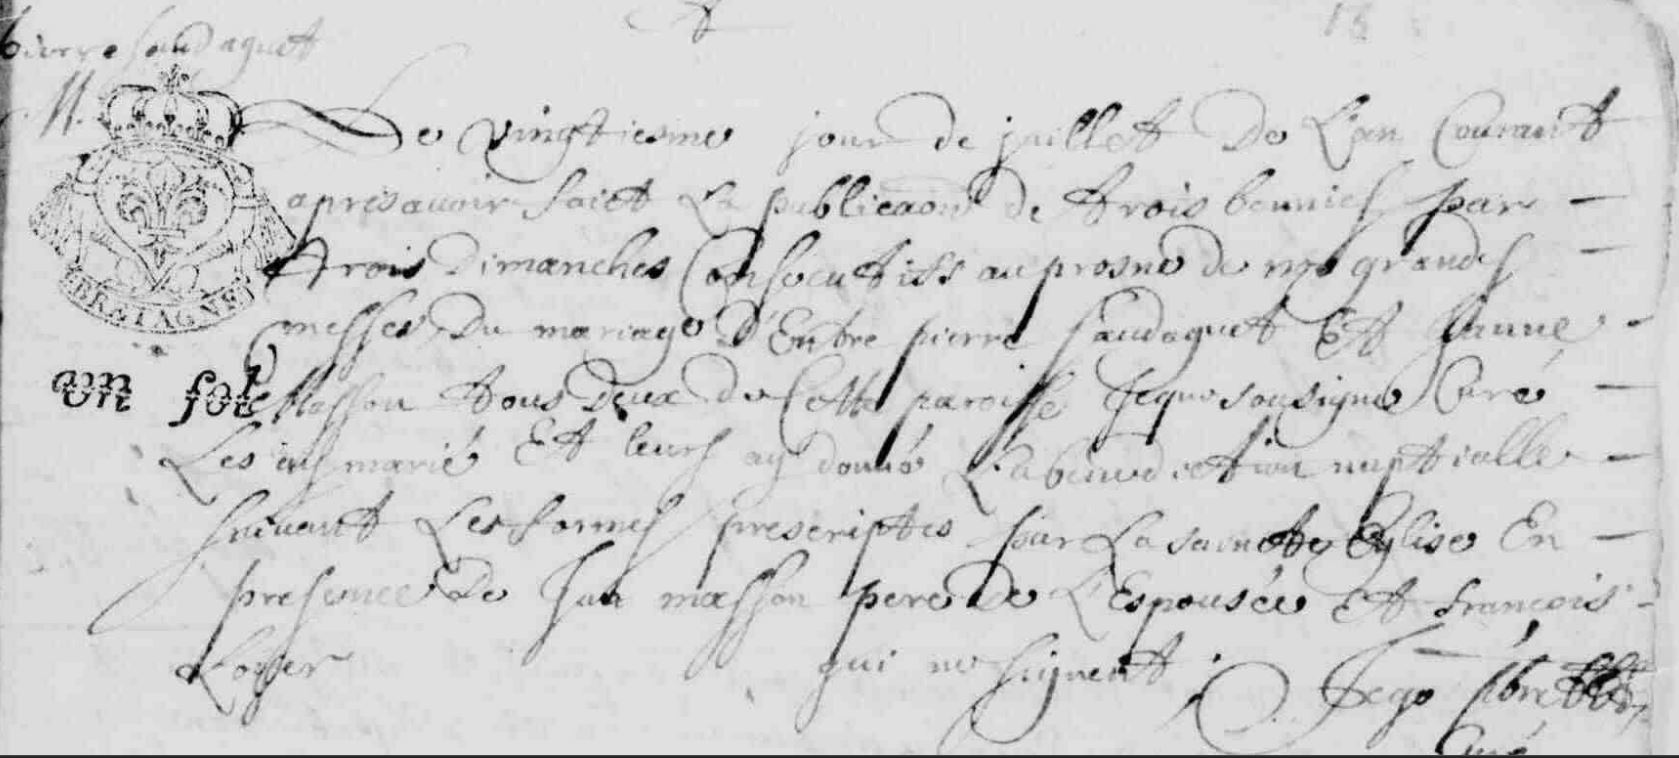 pierre saudaguet
M.
Le vingtiesme jour de juillet de L'an Courant
apres avoir faict La publicaon de trois bannies par
trois Dimanches Consecutifs au prosne de nos grandes
messes, Du mariage D'Entre pierre saudaguet Et Janne
Masson tous Deux de Cette paroisse Je que sousigne Curé
BRETAGNE
un sol
Les marié Et leurs ay donné La benediction nuptialle
suivant Les formes prescriptes par La saincte Eglise En
presence De Jan masson pere De L'Espousée Et françois
Loyer qui ne signent
Jego
Curé